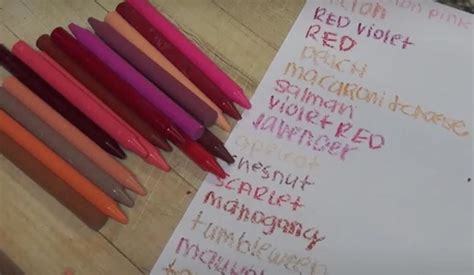 pink
RED violet
RED
peach
macaroni + cheese
salman
violet RED
lavender
apricot
hesnut
SCARLET
mahogany
tumbleweed